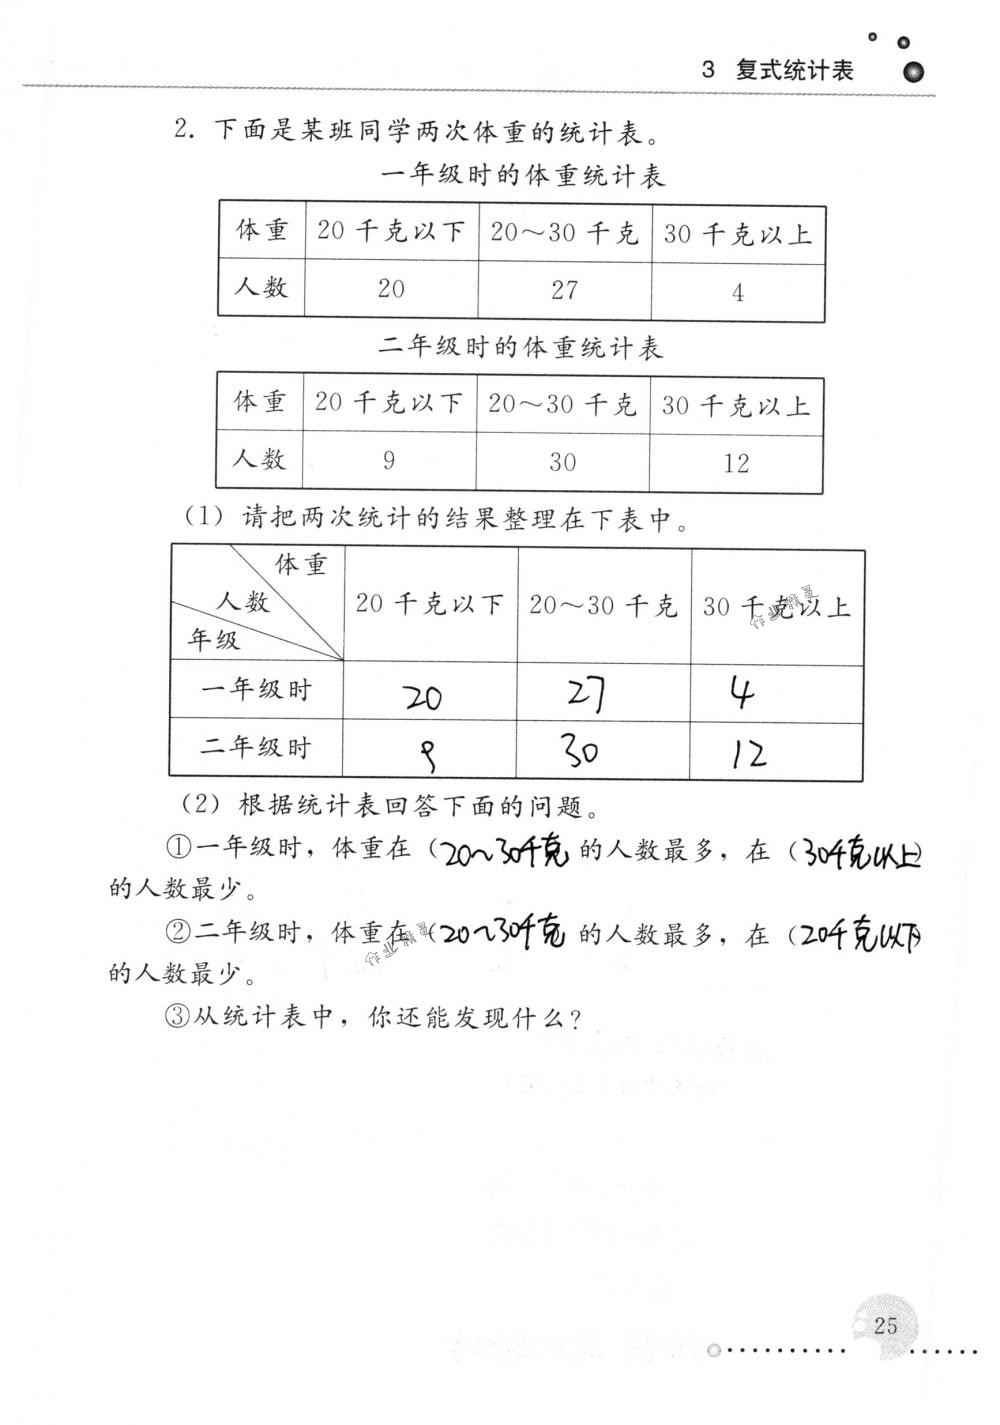 3 复式统计表
2. 下面是某班同学两次体重的统计表。
一年级时的体重统计表
体重 20千克以下 20～30千克 30千克以上
人数 20 27 4
二年级时的体重统计表
体重 20千克以下 20～30千克 30千克以上
人数 9 30 12
(1) 请把两次统计的结果整理在下表中。
体重
人数
年级
20千克以下 20～30千克 30千克以上
作业精灵
一年级时 20 27 4
二年级时 9 30 12
(2) 根据统计表回答下面的问题。
①一年级时，体重在（20～30千克 的人数最多，在（30千克以上）
的人数最少。
②二年级时，体重在（20～30千克 的人数最多，在（20千克以下）
作业精灵
的人数最少。
③从统计表中，你还能发现什么？
25